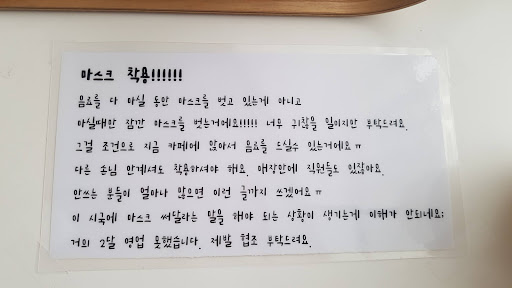 마스크 착용!!!!!!
음료를 다 마실 동안 마스크를 벗고 있는게 아니고
마실때만 잠깐 마스크를 벗는거에요!!!!! 너무 귀찮을 일이지만 부탁드려요.
그걸 조건으로 지금 카페에 앉아서 음료를 드실수 있는거에요 ㅠ
다른 손님 안계셔도 착용하셔야 해요. 매장안에 직원들도 있잖아요.
안쓰는 분들이 얼마나 많으면 이런 글까지 쓰겠어요 ㅠ
이 시국에 마스크 써달라는 말을 해야 되는 상황이 생기는게 이해가 안되네요;
거의 2달 영업 못했습니다. 제발 협조 부탁드려요.